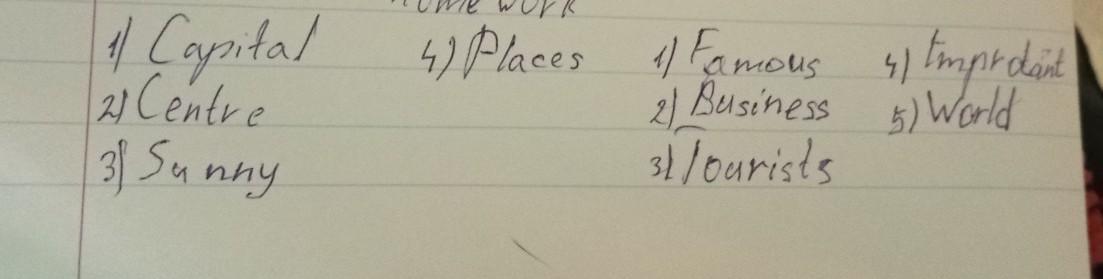 Home work
1) Capital 4) Places 1) Famous 4) Imprdant
2) Centre 2) Business 5) World
3) Sunny 3) Tourists